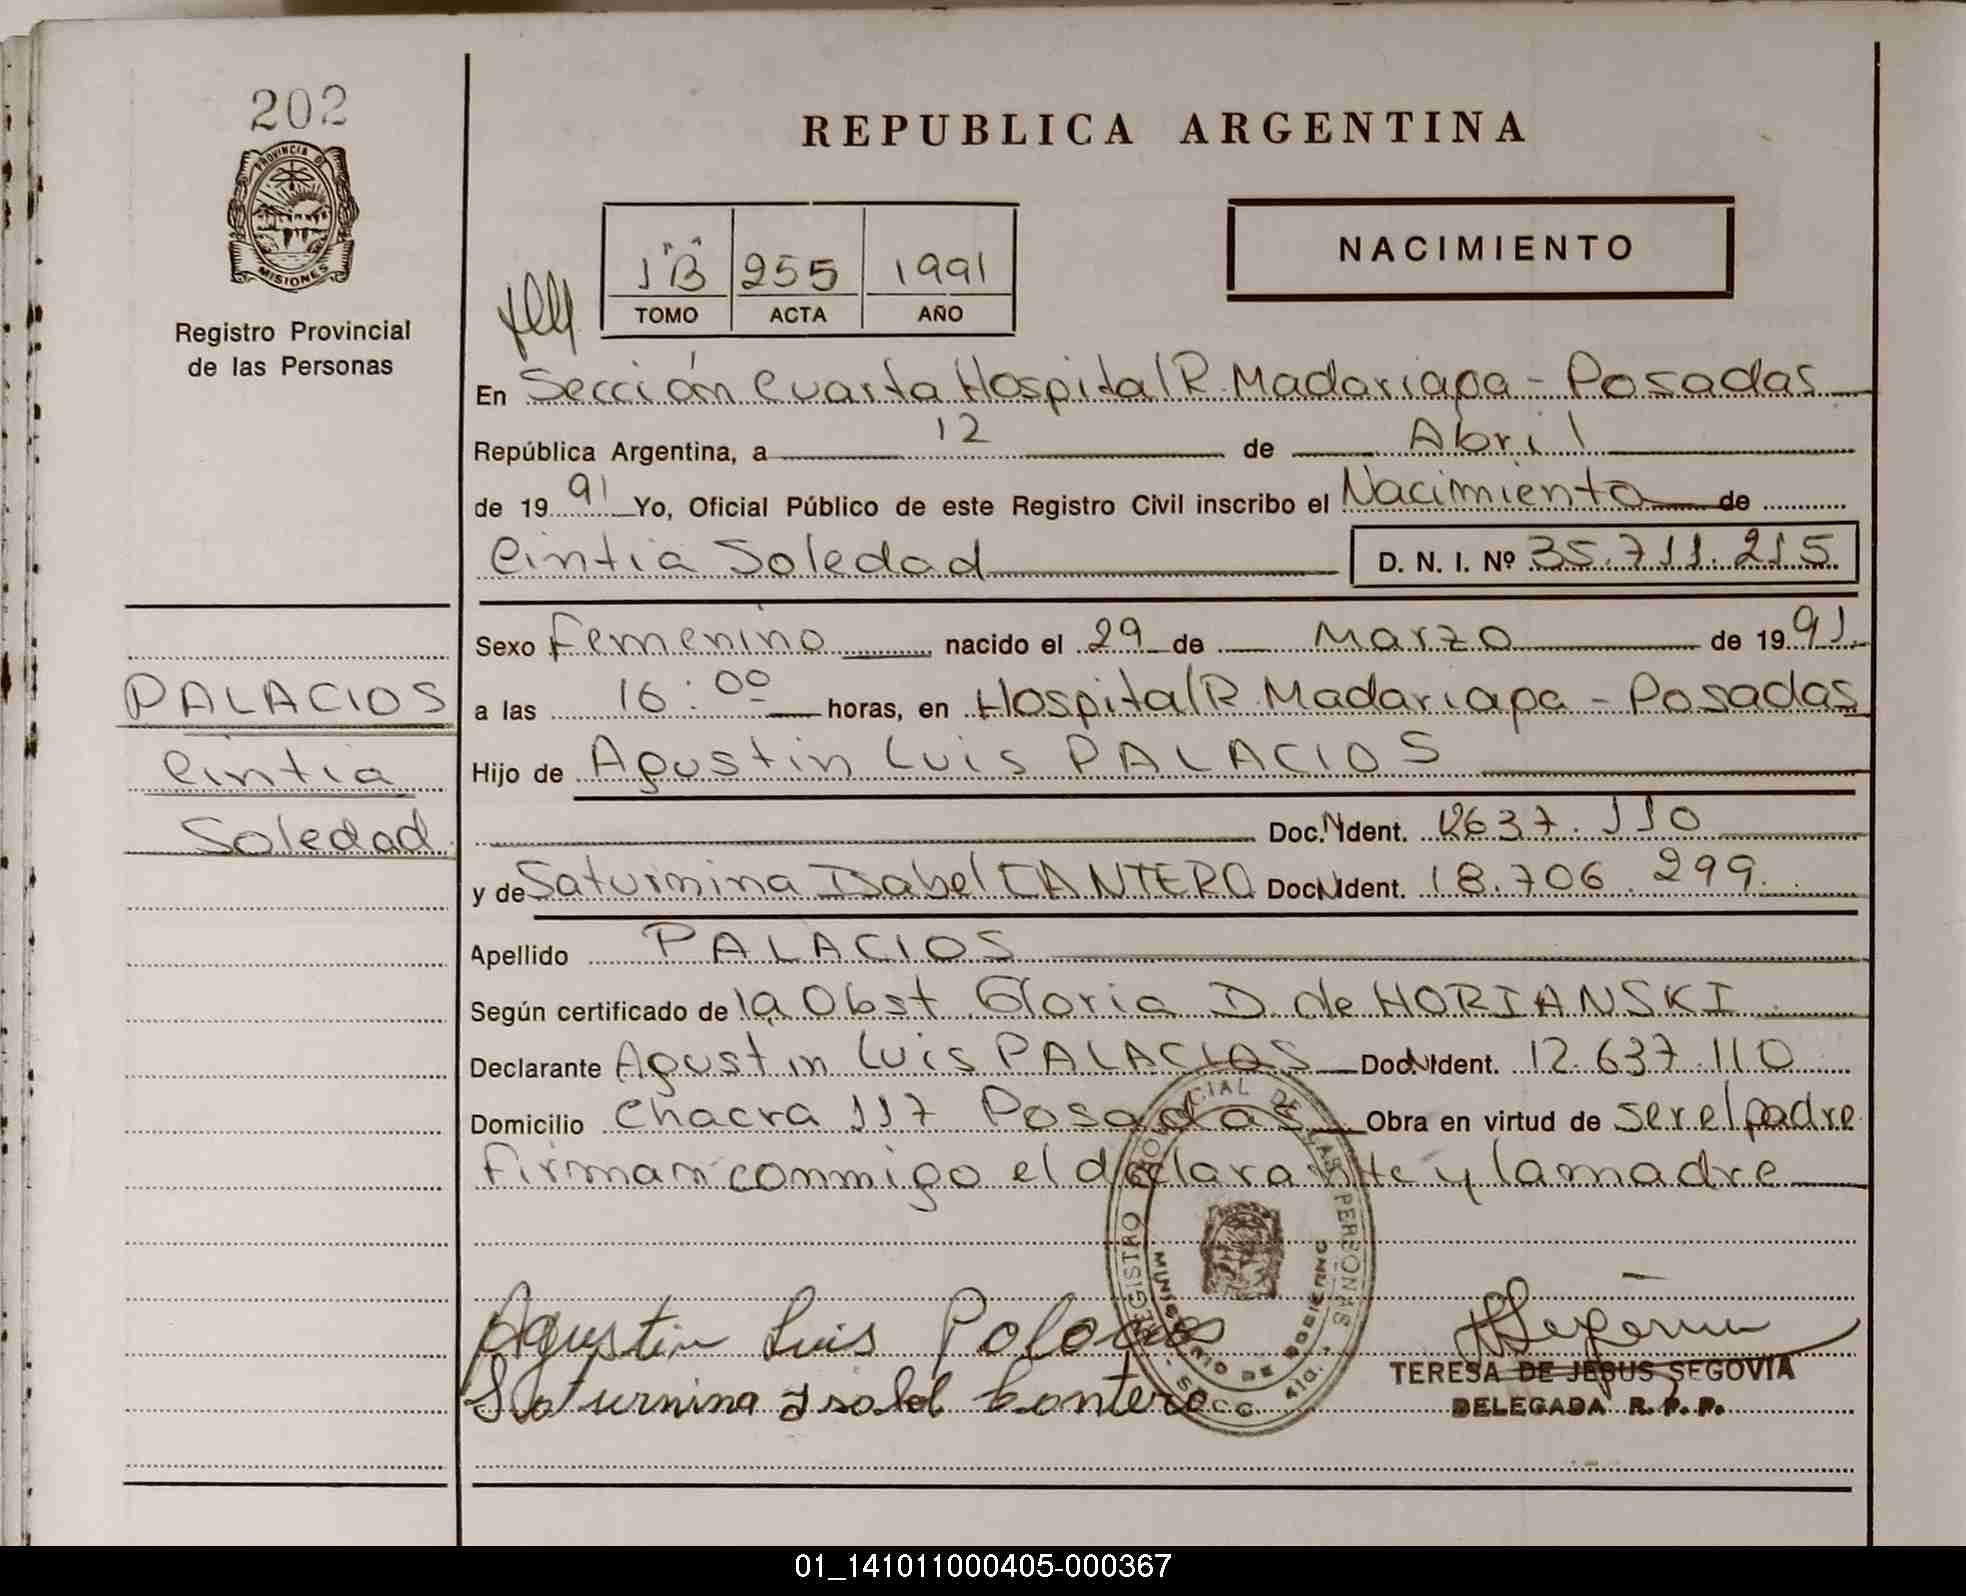 202
PROVINCIA DE
MISIONES
Registro Provincial
de las Personas
REPUBLICA ARGENTINA
NACIMIENTO
1"B" 255 1991
TOMO ACTA AÑO
En Sección Cuarta Hospital R. Madariaga - Posadas
República Argentina, a 12 de Abril
de 1991 Yo, Oficial Público de este Registro Civil inscribo el Nacimiento de
Cintia Soledad D. N. I. Nº 35.711.215
Sexo Femenino nacido el 29 de Marzo de 1991
a las 16:00 horas, en Hospital R. Madariaga - Posadas
Hijo de Agustin Luis PALACIOS
Doc. N Ident. 12637.110
y de Saturnina Isabel CANTERO Doc N Ident. 18.706.299.
Apellido PALACIOS
Según certificado de la Obst Gloria D. de HORIANSKI
Declarante Agustin Luis PALACIOS Doc N Ident. 12.637.110
Domicilio Chacra 117 Posadas Obra en virtud de ser el padre
Firman conmigo el declarante y la madre
PALACIOS
Cintia
Soledad
REGISTRO PROVINCIAL DE LAS PERSONAS
MINISTERIO DE GOBIERNO
Agustin Luis Palacios
Saturnina Isabel Cantero
TERESA DE JESUS SEGOVIA
DELEGADA R. P. P.
01_141011000405-000367